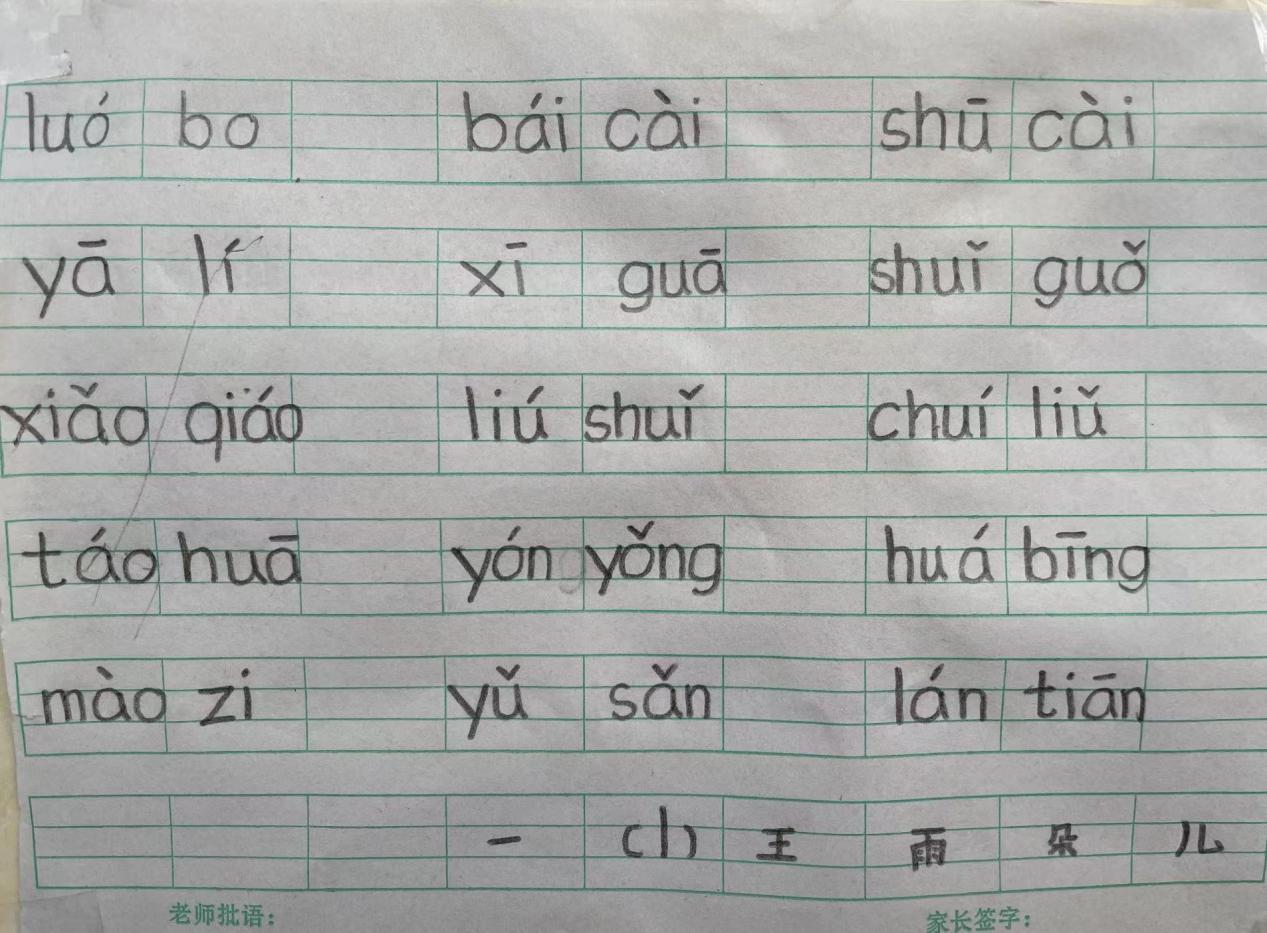 luó bo bái cài shū cài
yā lí xī guā shuǐ guǒ
xiǎo qiáo liú shuǐ chuí liǔ
táo huā yón yǒng huá bīng
mào zi yǔ sǎn lán tiān
一 ch 王 雨 朵 儿
老师批语： 家长签字：